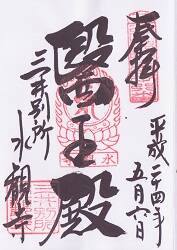 奉拝
平成二十四年
五月六日
醫王殿
三井別所
水観寺